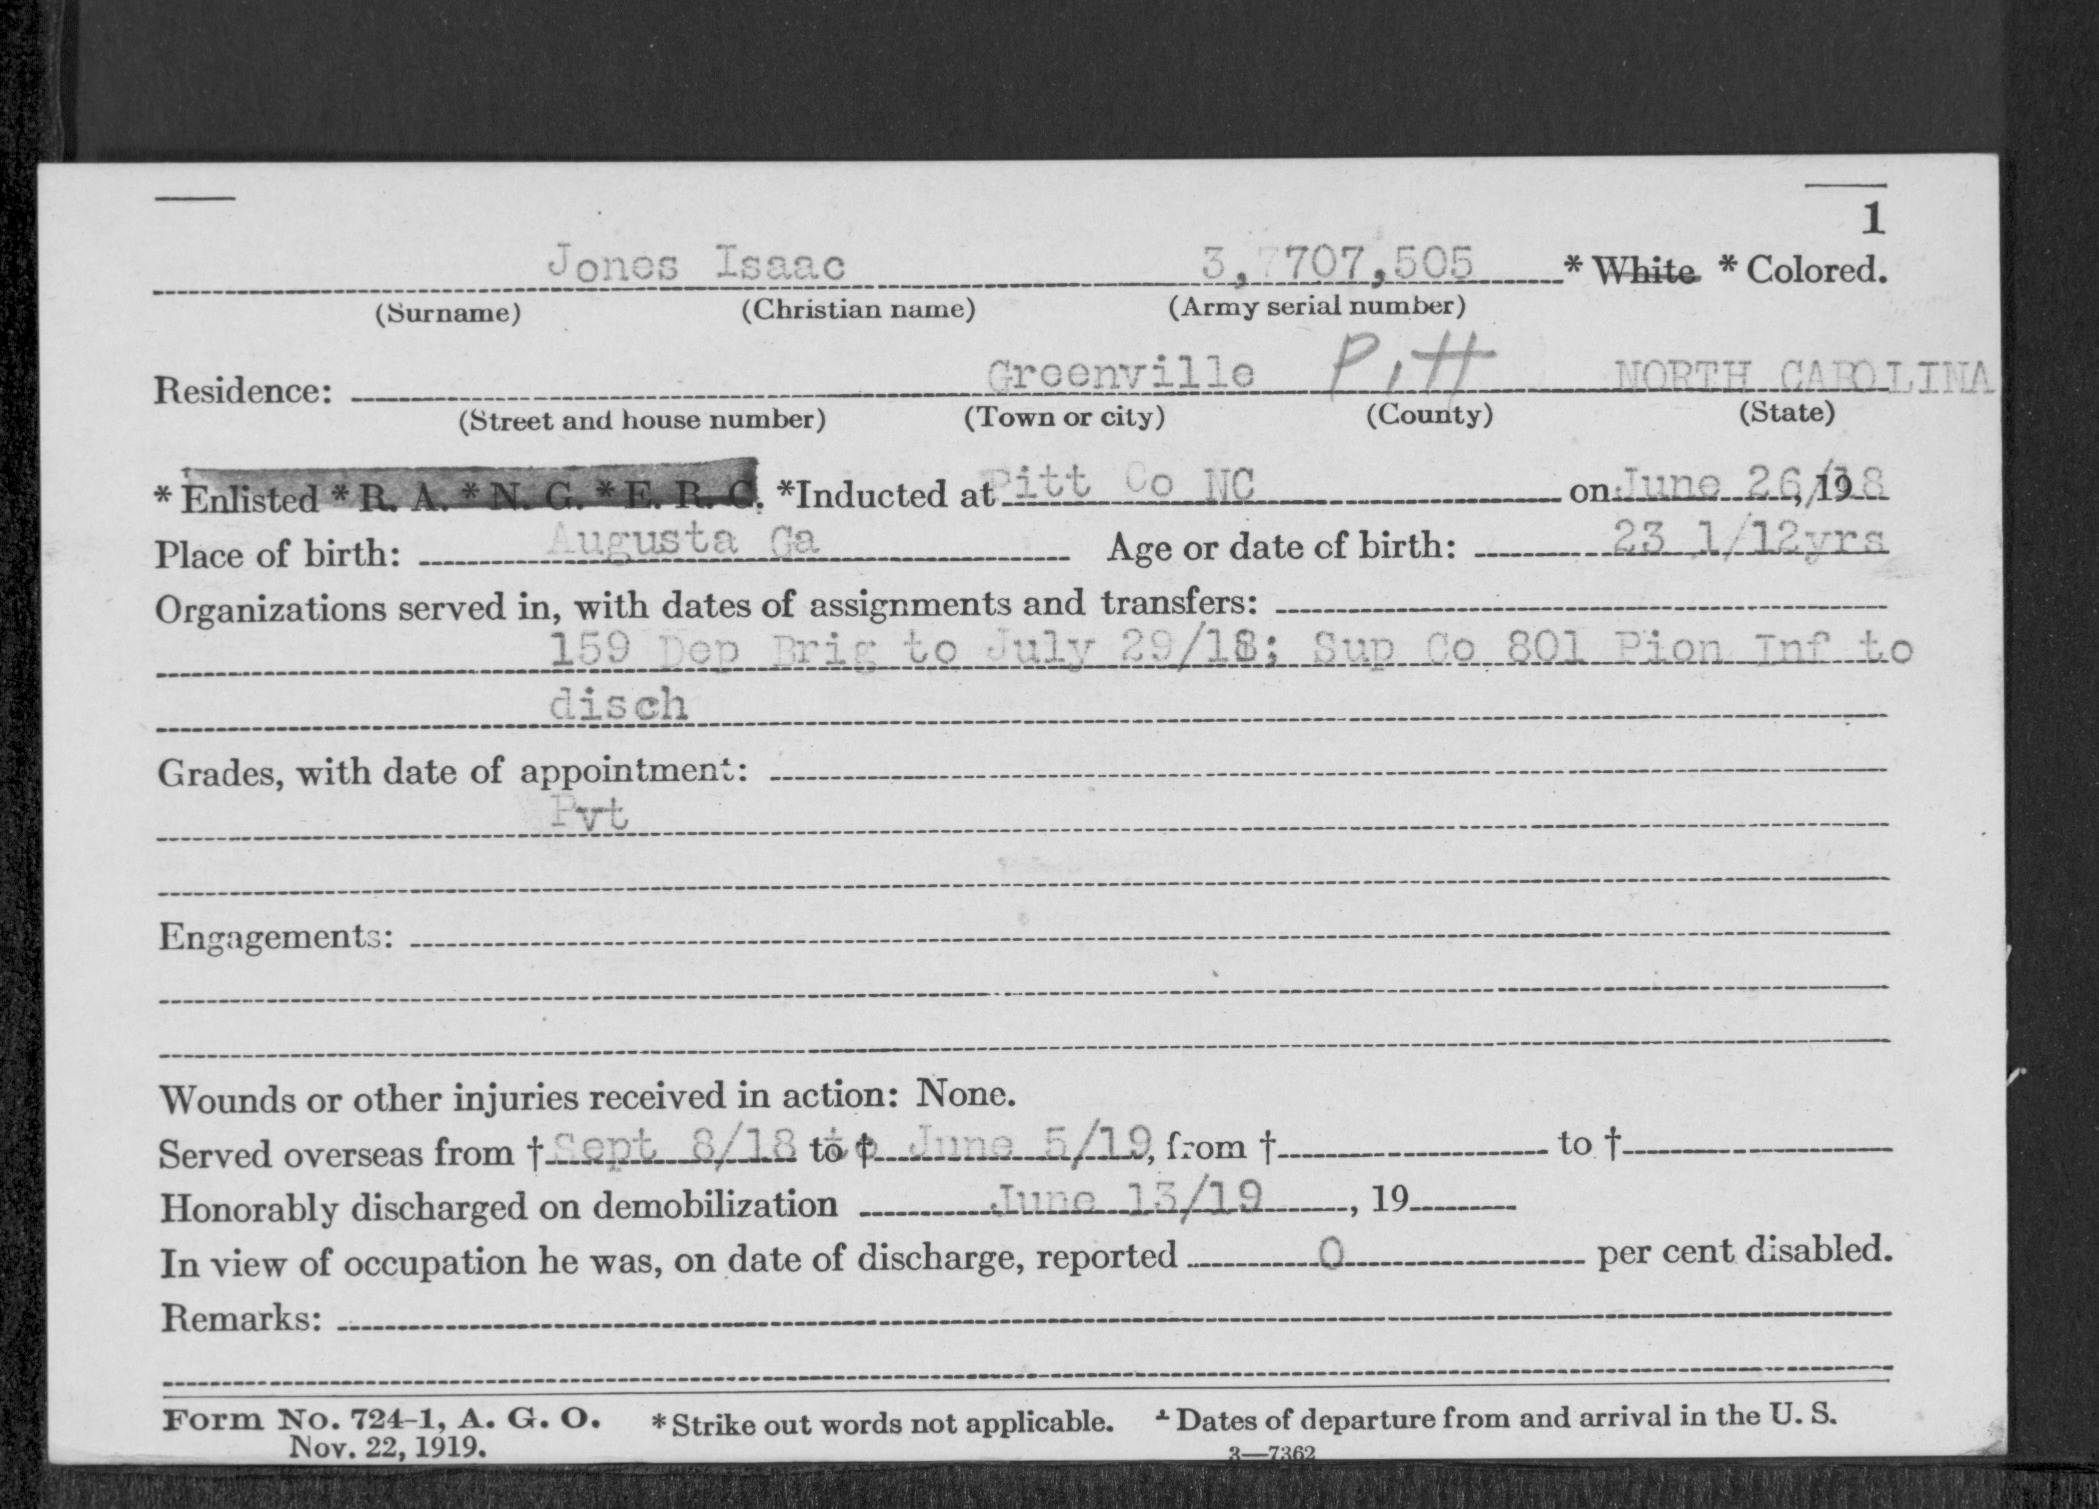 1
Jones Isaac 3,7707,505 * White * Colored.
(Surname) (Christian name) (Army serial number)
Residence: Greenville Pitt NORTH CAROLINA
(Street and house number) (Town or city) (County) (State)
* Enlisted * R. A. * N. G. * E. R. C. *Inducted at Pitt Co NC on June 26/18, 19
Place of birth: Augusta Ga Age or date of birth: 23 1/12yrs
Organizations served in, with dates of assignments and transfers:
159 Dep Brig to July 29/18; Sup Co 801 Pion Inf to
disch
Grades, with date of appointment:
Pvt
Engagements:
Wounds or other injuries received in action: None.
Served overseas from † Sept 8/18 to † to June 5/19, from † to †
Honorably discharged on demobilization June 13/19, 19
In view of occupation he was, on date of discharge, reported 0 per cent disabled.
Remarks:
Form No. 724-1, A. G. O. * Strike out words not applicable. † Dates of departure from and arrival in the U. S.
Nov. 22, 1919. 3—7362